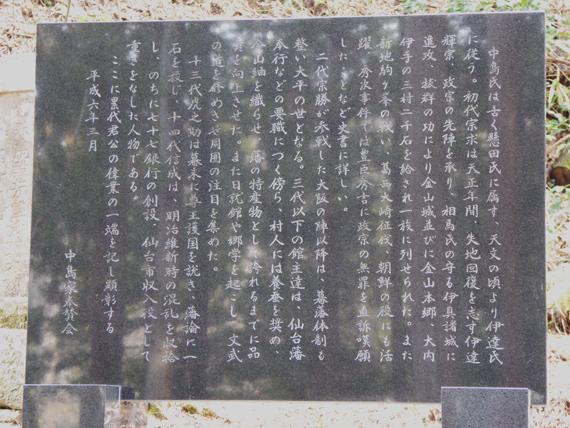 中島氏は古く懸田氏に属す 天文の頃より伊達氏
に従う。初代宗求は天正年間、失地回復を志す伊達
輝宗、政宗の先陣を承り、相馬氏の守る伊具諸城に
進攻、抜群の功により金山城並びに金山本郷、大内
伊手の三村二千石を給され一族に列せられた。また
新地駒ヶ峯の戦い、葛西大崎征伐、朝鮮の役にも活
躍、秀次事件では豊臣秀吉に政宗の無罪を直訴嘆願
したことなど史書に詳しい。
二代宗勝が参戦した大阪の陣以降は、幕藩体制も
整い太平の世となる。三代以下の館主達は、仙台藩
奉行などの要職につく傍ら、村人には養蚕を奨め、
金山紬を織らせて藩の特産物として誇れるまでに品
質を向上させた。また日就館や郷学を起こし、文武
の道を修めさせ周囲の注目を集めた。
十三代虎之助は幕末に尊王護国を説き、藩論に一
石を投じ、十四代信成は、明治維新時の混乱を収拾
し、のちに七十七銀行の創設、仙台市収入役として
重きをなした人物である。
ここに累代君公の偉業の一端を記し顕彰する
平成六年三月
中島家奉賛会